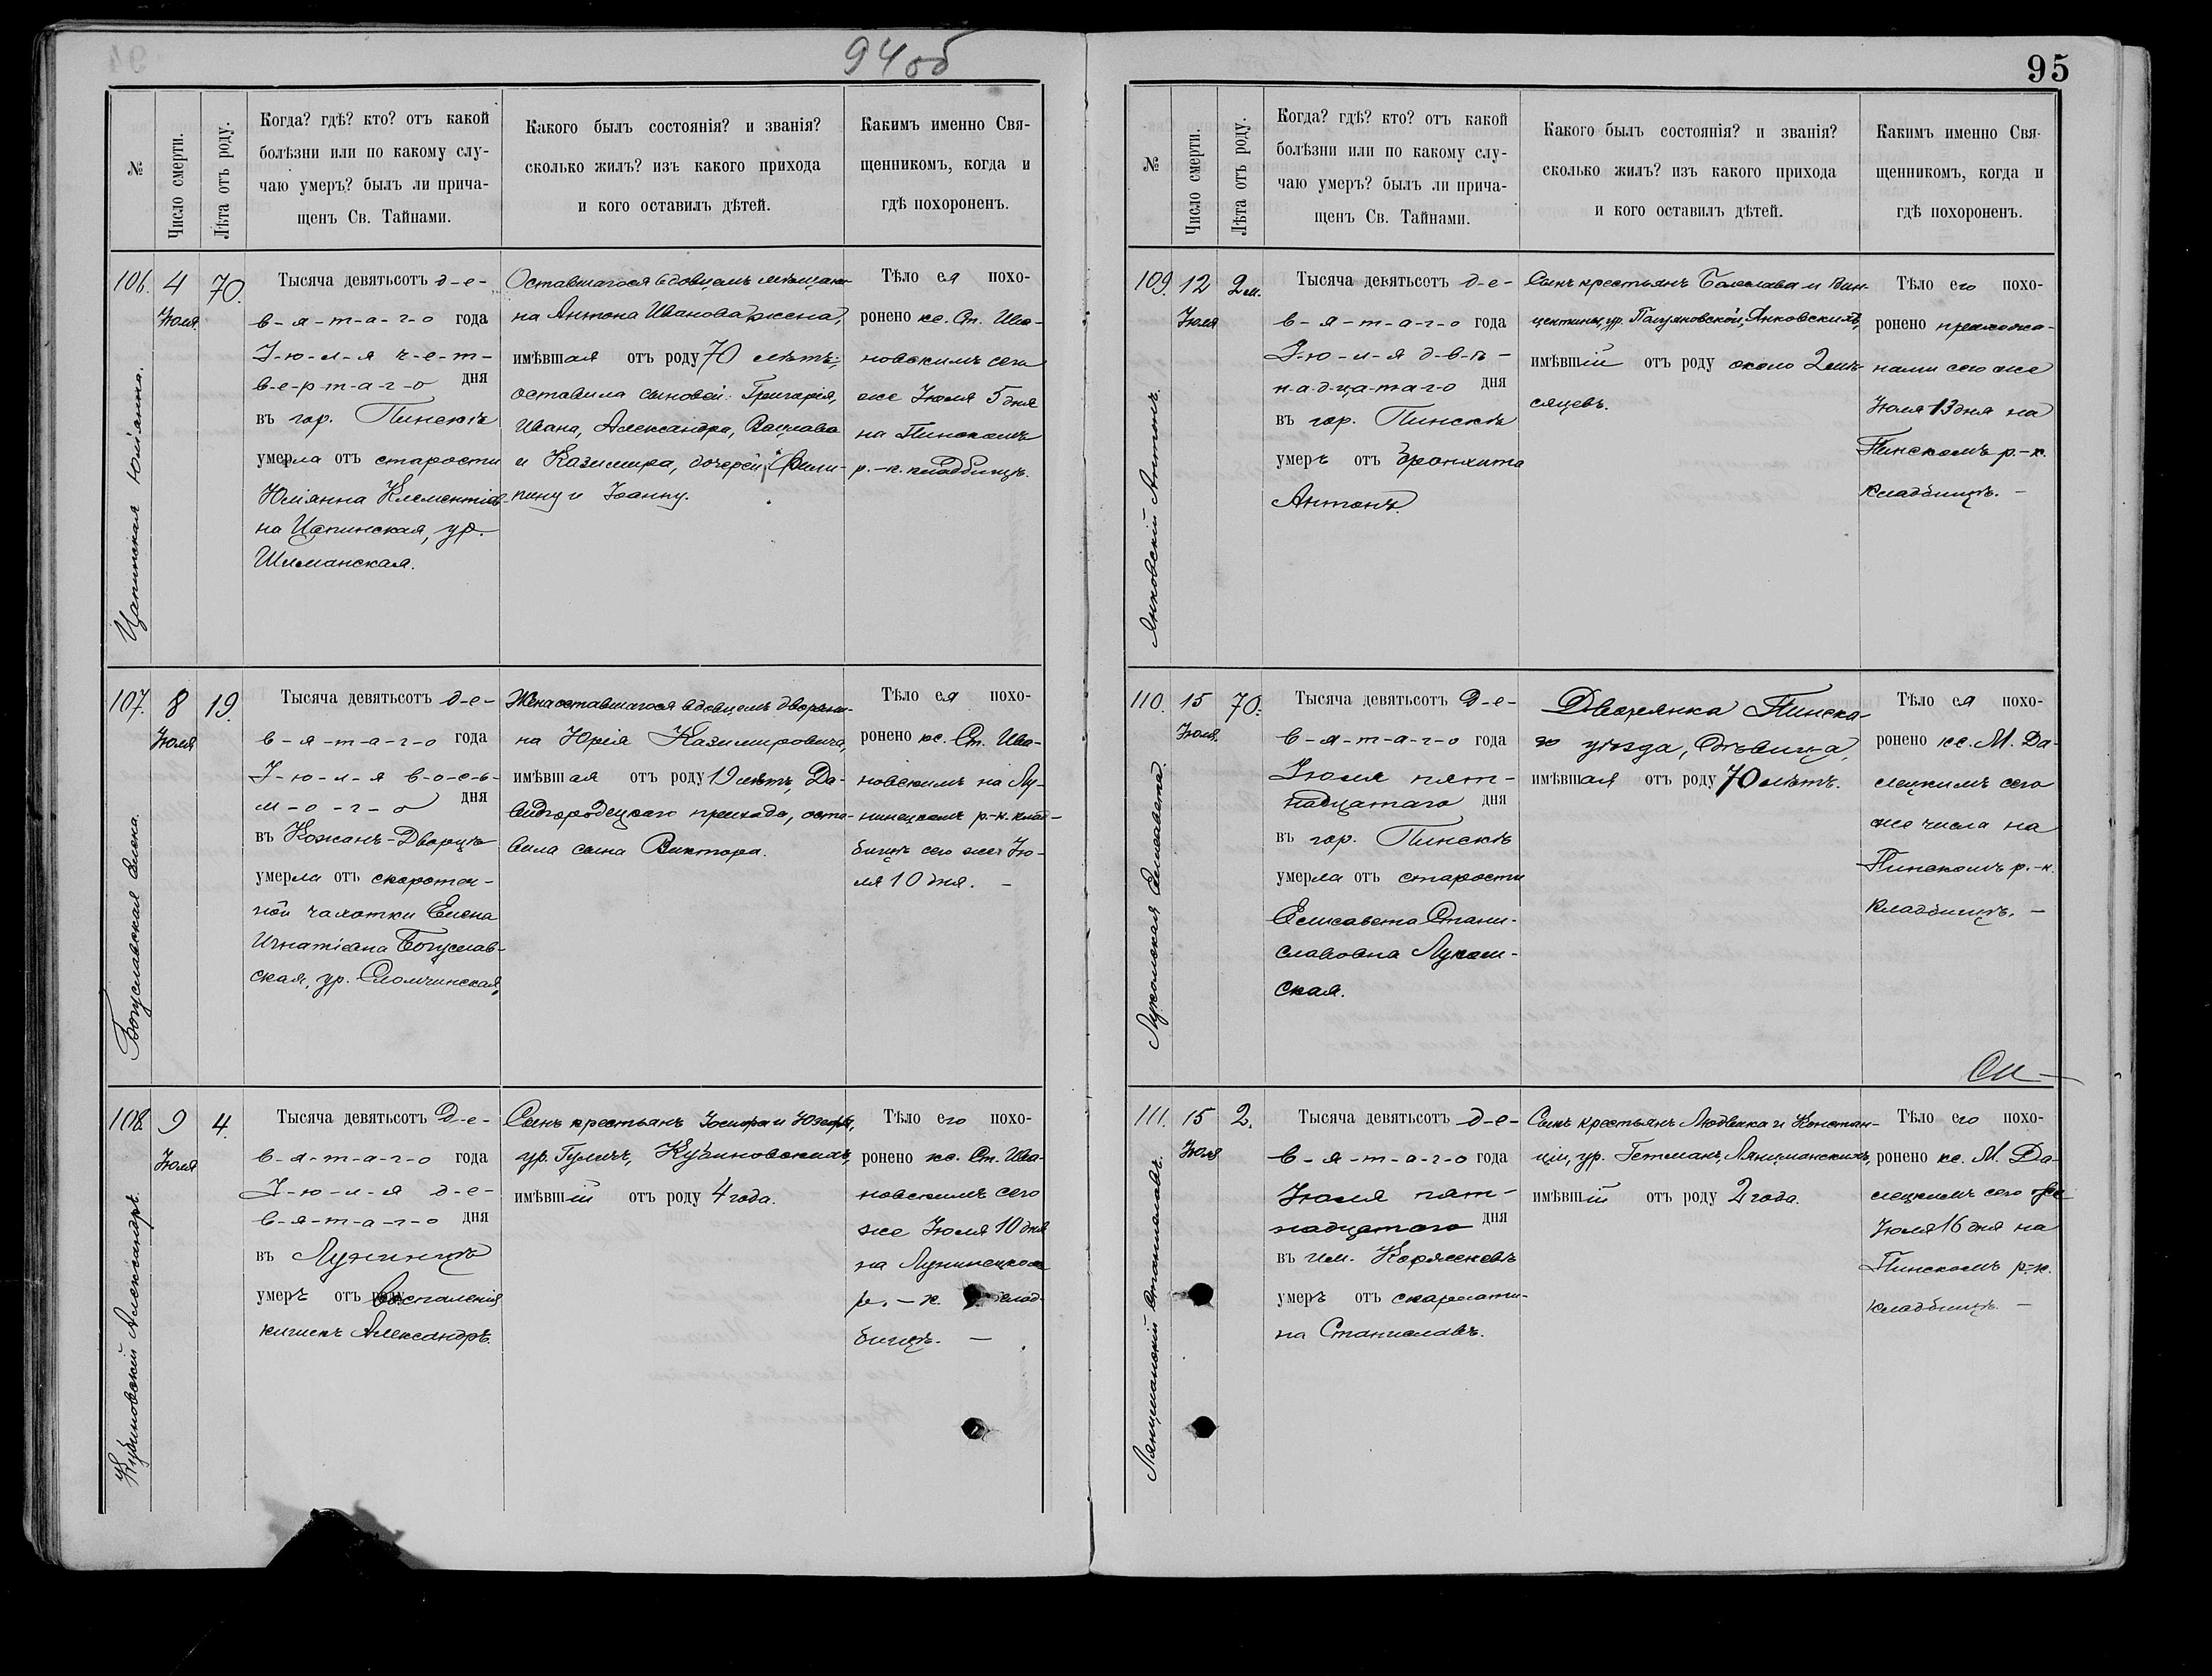 94об
№
Число смерти.
Лѣта отъ роду.
Когда? гдѣ? кто? отъ какой
болѣзни или по какому слу-
чаю умеръ? былъ ли прича-
щенъ Св. Тайнами.
Какого былъ состоянія? и званія?
сколько жилъ? изъ какого прихода
и кого оставилъ дѣтей.
Какимъ именно Свя-
щенникомъ, когда и
гдѣ похороненъ.
106.
Цапинская Юліянна.
4
Іюля
70.
Тысяча девятьсотъ д-е-
в-я-т-а-г-о года
І-ю-л-я ч-е-т-
в-е-р-т-а-г-о дня
въ гор. Пинскѣ
умерла отъ старости
Юліянна Клементіев-
на Цапинская, ур.
Шиманская.
Оставшагося вдовцемъ мѣщани-
на Антона Иванова жена,
имѣвшая отъ роду 70 лѣтъ,
оставила сыновей: Григорія,
Ивана, Александра, Вацлава
и Казимира, дочерей: Фили-
пину и Іоанну.
Тѣло ея похо-
ронено кс. Ст. Ива-
новскимъ сего
же Іюля 5 дня
на Пинскомъ
р.-к. кладбищѣ.
107.
Богуславская Елена.
8
Іюля
19.
Тысяча девятьсотъ д-е-
в-я-т-а-г-о года
І-ю-л-я в-о-с-ь-
м-о-г-о дня
въ Кожанъ-Дворцѣ
умерла отъ скоротеч-
ной чахотки Елена
Игнатіевна Богуслав-
ская, ур. Сломчинская,
Жена оставшагося вдовцемъ дворяни-
на Юрія Казимировича,
имѣвшая отъ роду 19 лѣтъ, Да-
видгородецкаго прихода, оста-
вила сына Виктора.
Тѣло ея похо-
ронено кс. Ст. Ива-
новскимъ на Лу-
нинецкомъ р.-к. клад-
бищѣ сего же Ію-
ля 10 дня. —
108.
Кубиновскій Александръ.
9
Іюля
4.
Тысяча девятьсотъ Д-е-
в-я-т-а-г-о года
І-ю-л-я д-е-
в-я-т-а-г-о дня
въ Лунинцѣ
умеръ отъ воспаленія
кишекъ Александръ.
Сынъ крестьянъ Іосифа и Юзефы,
ур. Гуличъ, Кубиновскихъ,
имѣвшій отъ роду 4 года.
Тѣло его похо-
ронено кс. Ст. Ива-
новскимъ сего
же Іюля 10 дня
на Лунинецкомъ
р.-к. клад-
бищѣ. —
95
№
Число смерти.
Лѣта отъ роду.
Когда? гдѣ? кто? отъ какой
болѣзни или по какому слу-
чаю умеръ? былъ ли прича-
щенъ Св. Тайнами.
Какого былъ состоянія? и званія?
сколько жилъ? изъ какого прихода
и кого оставилъ дѣтей.
Какимъ именно Свя-
щенникомъ, когда и
гдѣ похороненъ.
109.
Янковскій Антонъ.
12
Іюля
2 м.
Тысяча девятьсотъ д-е-
в-я-т-а-г-о года
І-ю-л-я д-в-ѣ-
н-а-д-ца-таг-о дня
въ гор. Пинскѣ
умеръ отъ бронхита
Антонъ.
Сынъ крестьянъ Болеслава и Вин-
центины, ур. Янковскихъ,
имѣвшій отъ роду около 2 мѣ-
сяцевъ.
Тѣло его похо-
ронено прихожа-
нами сего же
Іюля 13 дня на
Пинскомъ р.-к.
кладбищѣ. —
110.
Лукомская Елисавета.
15
Іюля.
70.
Тысяча девятьсотъ Д-е-
в-я-т-а-г-о года
Іюля пят-
надцатаго дня
въ гор. Пинскѣ
умерла отъ старости
Елисавета Стани-
славовна Луком-
ская.
Дворянка Пинска-
го уѣзда, дѣвица,
имѣвшая отъ роду 70 лѣтъ.
Тѣло ея похо-
ронено кс. М. Да-
лецкимъ сего
же числа на
Пинскомъ р.-к.
кладбищѣ. —
111.
Лянцманскій Станиславъ.
15
Іюля
2.
Тысяча девятьсотъ д-е-
в-я-т-а-г-о года
Іюля пят-
надцатаго дня
въ им.
умеръ отъ скарлати-
на Станиславъ.
Сынъ крестьянъ Людвика и Констан-
ціи, ур. Гетманъ, Лянцманскихъ,
имѣвшій отъ роду 2 года.
Тѣло его похо-
ронено кс. М. Да-
лецкимъ сего же
Іюля 16 дня на
Пинскомъ р.-к.
кладбищѣ. —